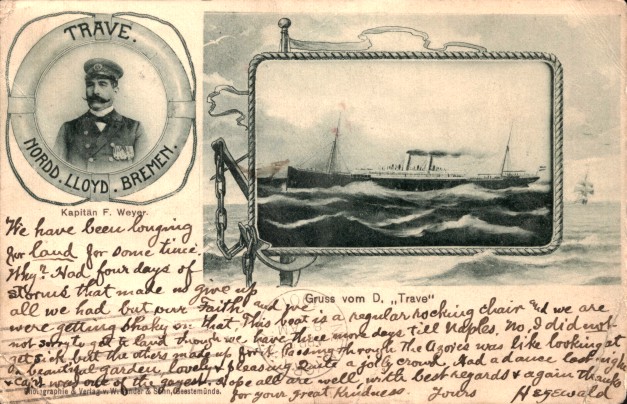 TRAVE.
NORDD. LLOYD. BREMEN.
Kapitän F. Weyer.
Gruss vom D. „Trave"
We have been longing
for land for some time.
Why? Had four days of
storms that made us give up
all we had but our Faith and we
were getting shaky on that. This boat is a regular rocking chair and we are
not sorry to get to land though we have three more days till Naples. No, I did not
get sick but the others made up for it. Passing through the Azores was like looking at
a beautiful garden, lovely & pleasing. Quite a jolly crowd. Had a dance last night
& Capt was one of the gayest. Hope all are well, with best regards & again thanks
for your great kindness. Yours Hegewald
Bibliographie & Verlag v. & Sohn, Geestemünde.